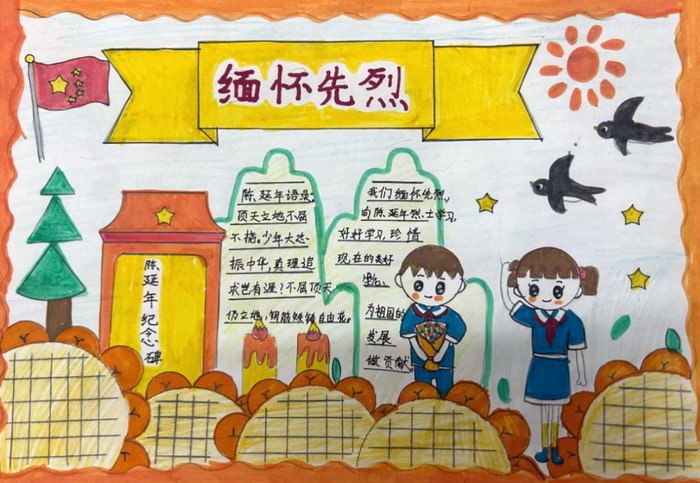 缅怀先烈
陈延年纪念碑
陈延年语录:
顶天立地不屈
不挠,少年大志
振中华,真理追
求岂有涯?不屈顶天
仍立地,钢筋
自由花。
我们缅怀先烈,
向陈延年烈士学习,
好好学习,珍惜
现在的美好
为祖国的
发展
做贡献